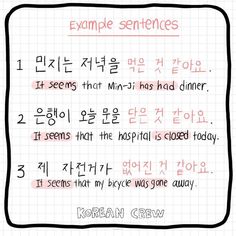 Example sentences
1 민지는 저녁을 먹은 것 같아요.
It seems that Min-Ji has had dinner.
2 은행이 오늘 문을 닫은 것 같아요.
It seems that the hospital is closed today.
3 제 자전거가 없어진 것 같아요.
It seems that my bicycle was gone away.
KOREAN CREW